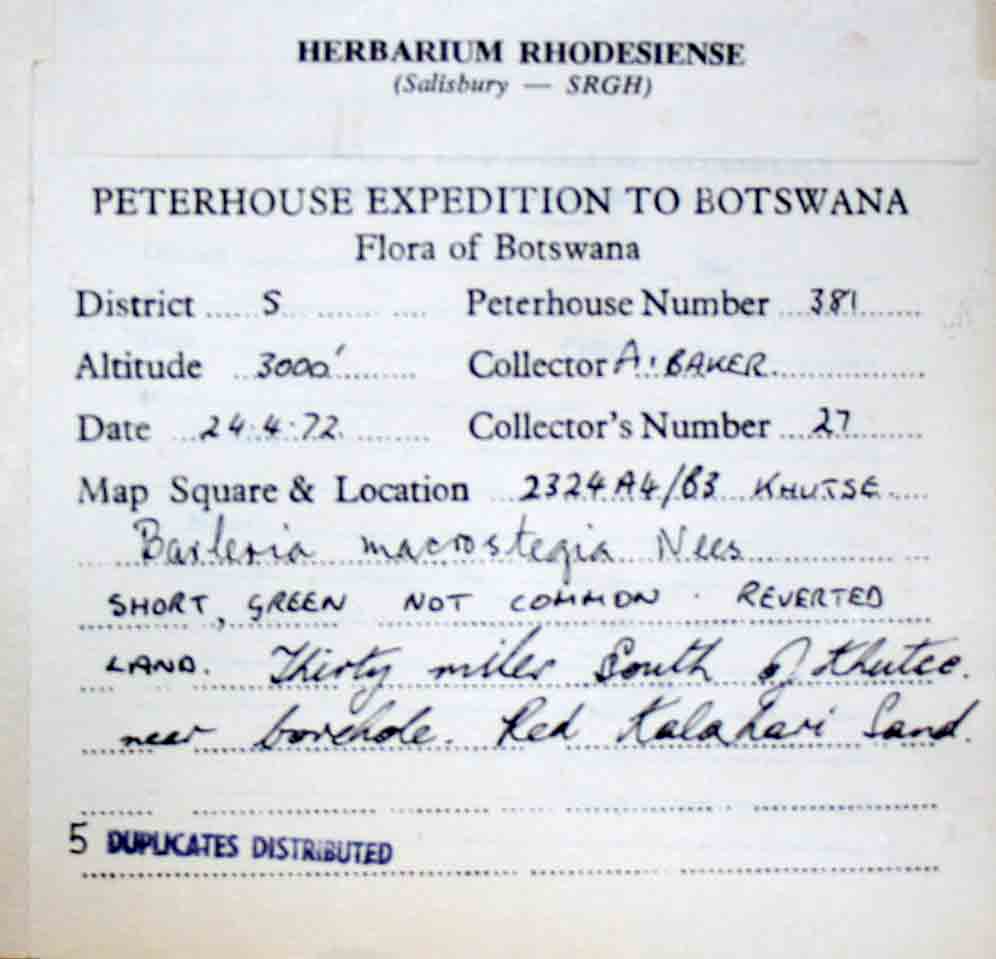 HERBARIUM RHODESIENSE
(Salisbury — SRGH)
PETERHOUSE EXPEDITION TO BOTSWANA
Flora of Botswana
District ..... S ..... Peterhouse Number ... 381 .....
Altitude ... 3000' ..... Collector A. BAKER .....
Date ... 24.4.72 ..... Collector's Number ... 27 .....
Map Square & Location ... 2324A4/B3 KHUTSE .....
Barleria macrostegia Nees
SHORT, GREEN NOT COMMON . REVERTED
LAND. Thirty miles South of Khutse.
near borehole. Red Kalahari Sand.
5 DUPLICATES DISTRIBUTED